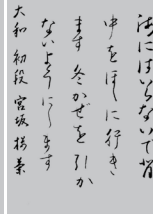 にはいらないで背
中をほしに行き
ます 冬かぜを引か
ないようにします
大和 初段 宮坂